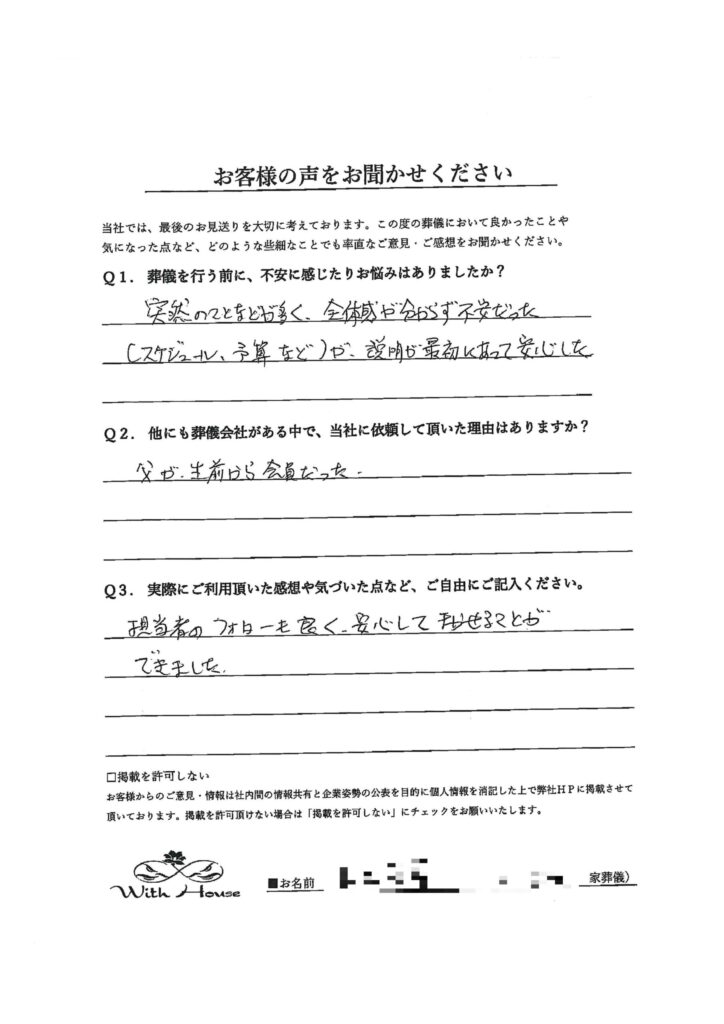 お客様の声をお聞かせください
当社では、最後のお見送りを大切に考えております。この度の葬儀において良かったことや
気になった点など、どのような些細なことでも率直なご意見・ご感想をお聞かせください。
Q1．葬儀を行う前に、不安に感じたりお悩みはありましたか？
突然のことなどが多く、全体感が分からず不安だった
(スケジュール、予算など)が、説明が最初にあって安心した
Q2．他にも葬儀会社がある中で、当社に依頼して頂いた理由はありますか？
父が、生前から会員だった.
Q3．実際にご利用頂いた感想や気づいた点など、ご自由にご記入ください。
担当者のフォローも良く、安心してまかせることが
できました.
□掲載を許可しない
お客様からのご意見・情報は社内間の情報共有と企業姿勢の公表を目的に個人情報を消記した上で弊社HPに掲載させて
頂いております。掲載を許可頂けない場合は「掲載を許可しない」にチェックをお願いいたします。
With House
■お名前 家葬儀）